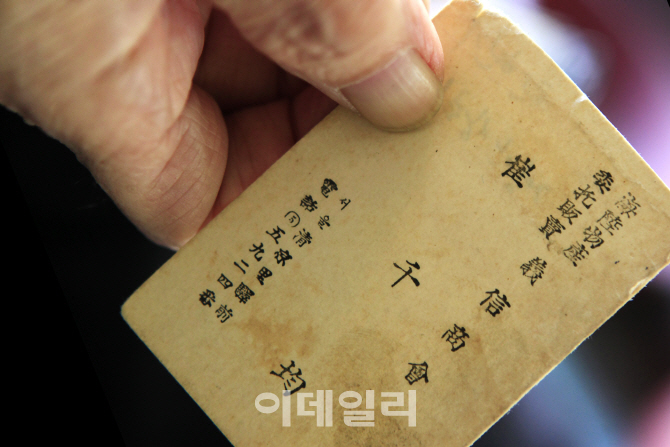 海陸物産
委托販賣
義信商會
崔千均
서울 清凉里驛前
電話 五九二四番
이데일리